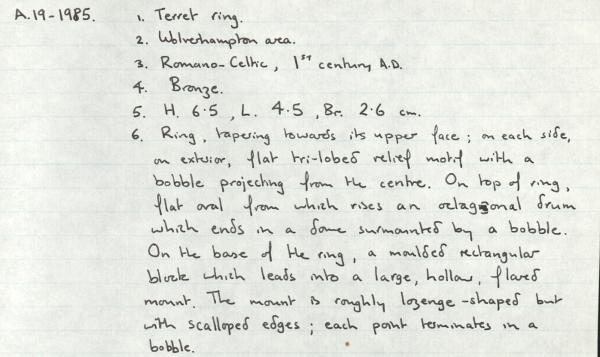 A.19-1985. 1. Terret ring.
2. Wolverhampton area.
3. Romano-Celtic, 1ST century A.D.
4. Bronze.
5. H. 6.5, L. 4.5, Br. 2.6 cm.
6. Ring, tapering towards its upper face; on each side,
on exterior, flat tri-lobed relief motif with a
bobble projecting from the centre. On top of ring,
flat oval from which rises an octagonal drum
which ends in a dome surmounted by a bobble.
On the base of the ring, a moulded rectangular
block which leads into a large, hollow, flared
mount. The mount is roughly lozenge-shaped but
with scalloped edges; each point terminates in a
bobble.